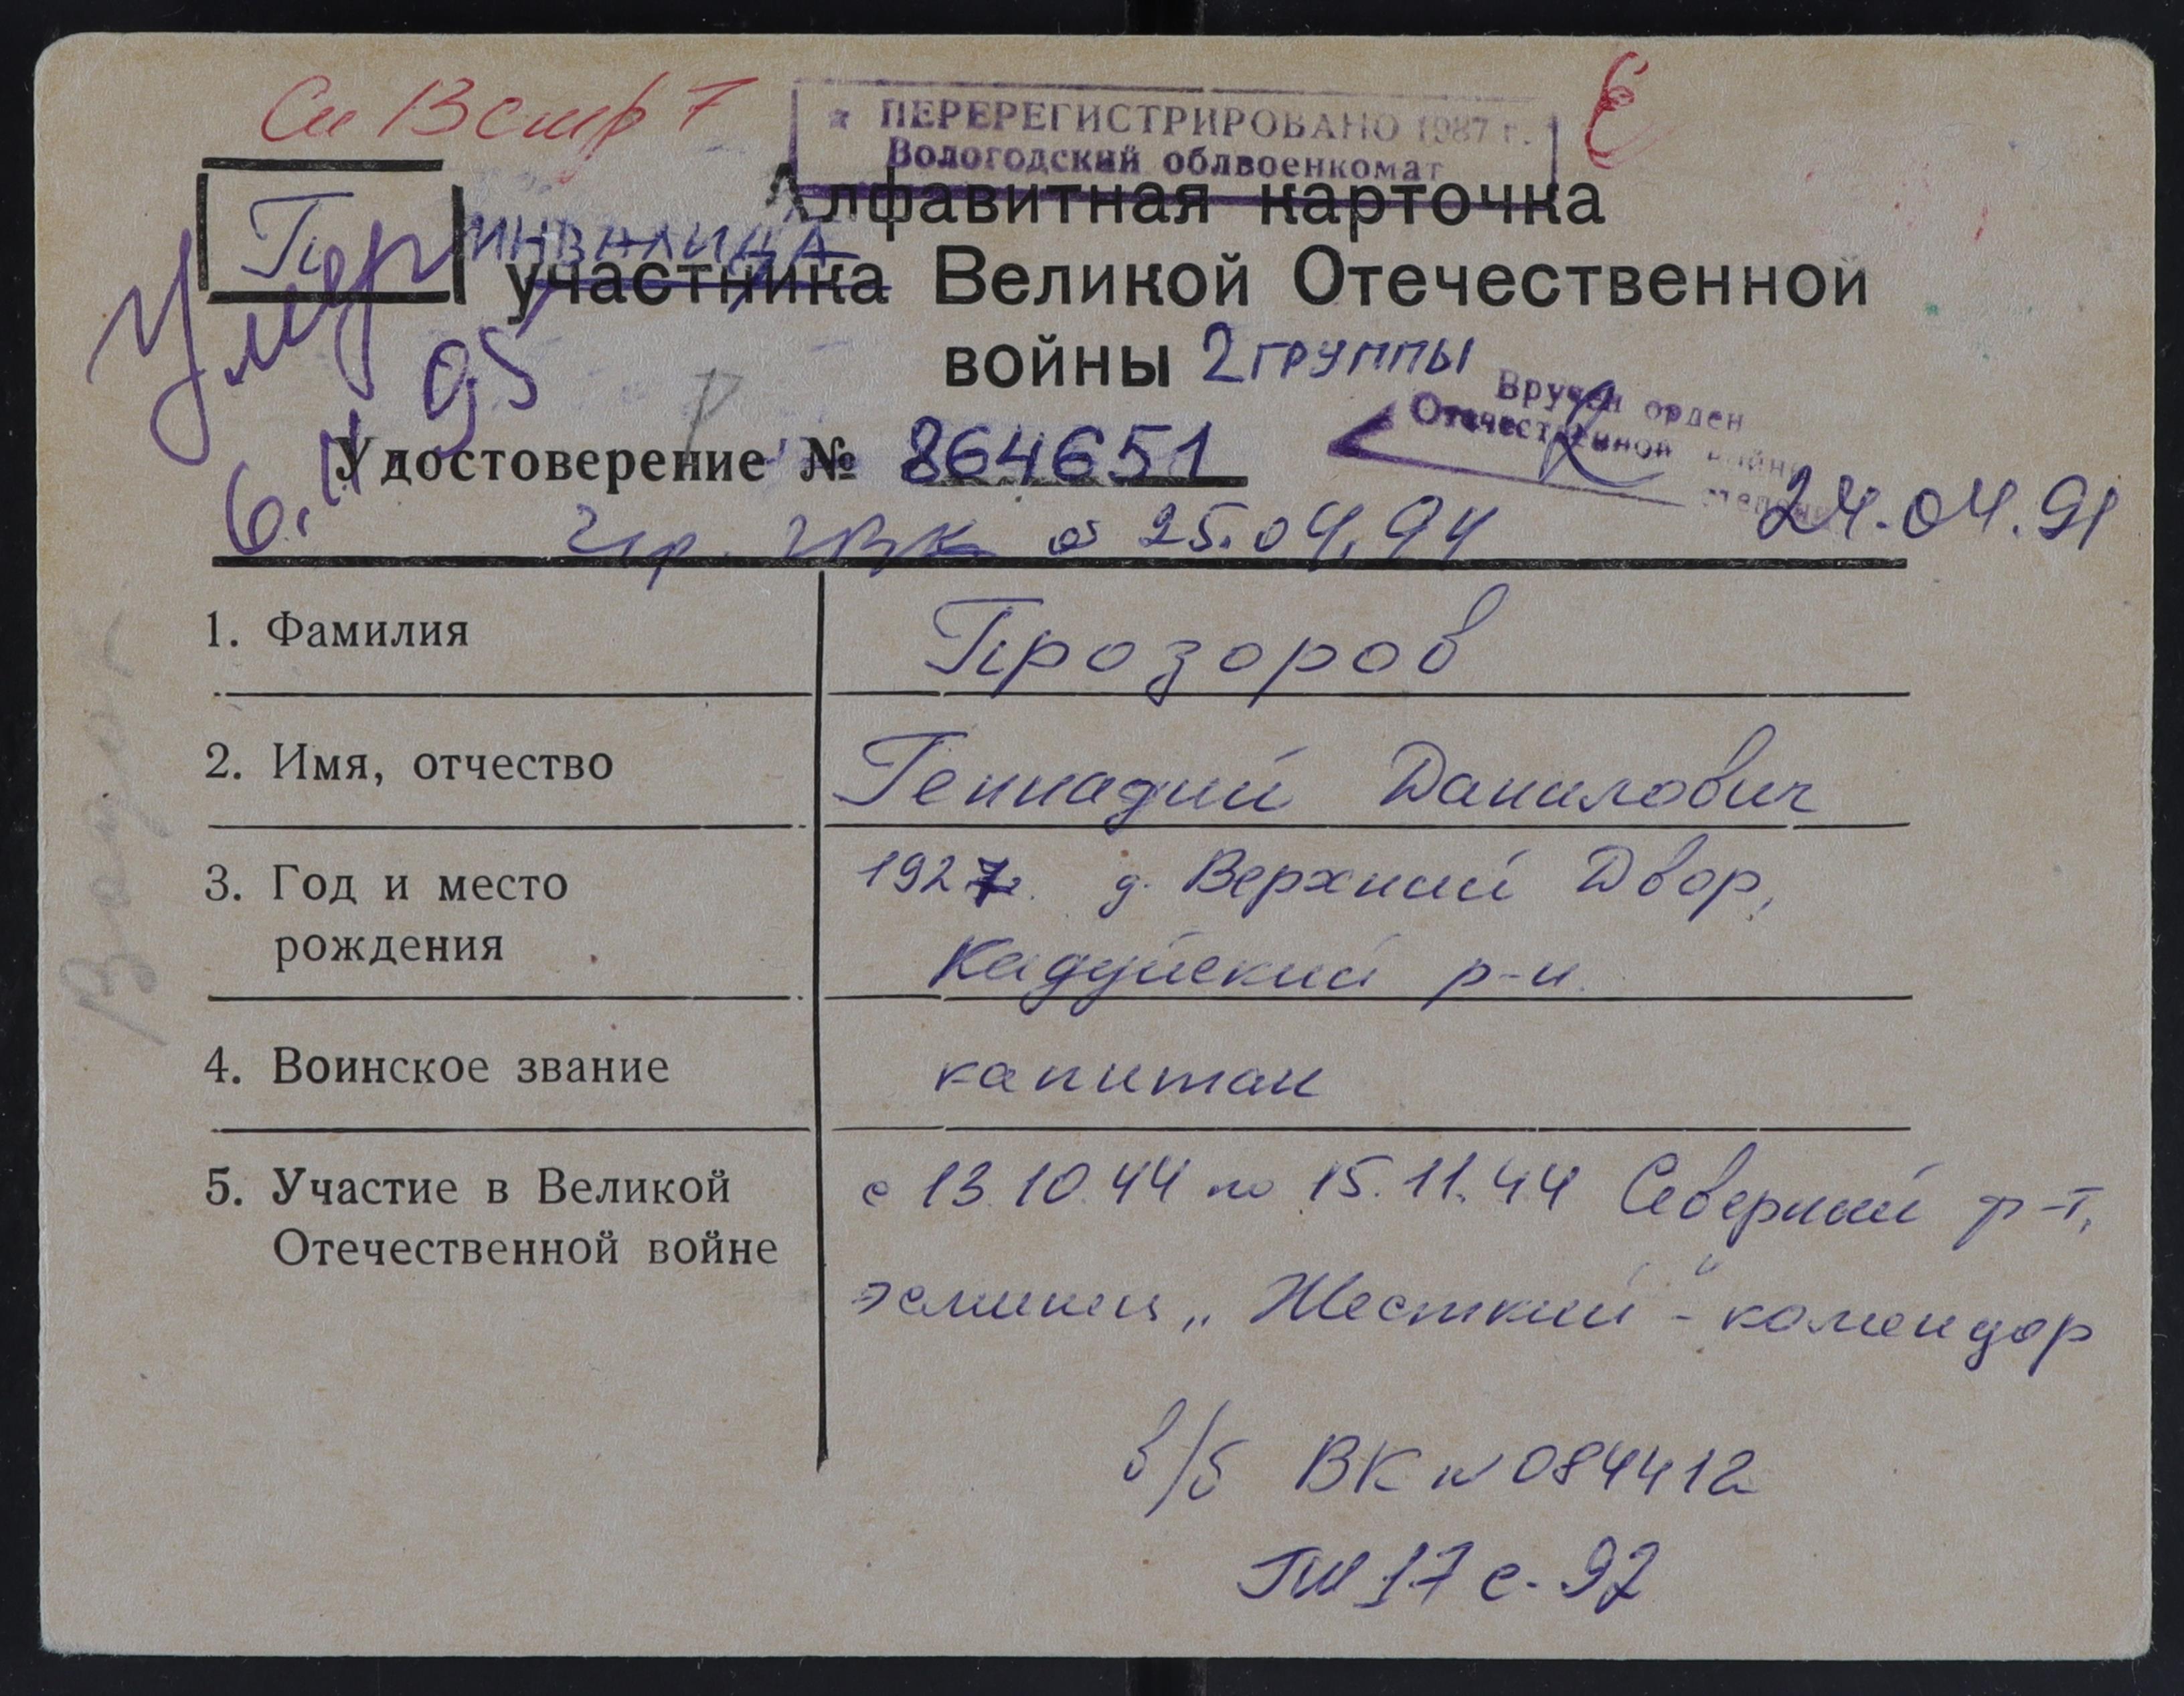 См 13 стр 7
ПЕРЕРЕГИСТРИРОВАНО 1987 г.
Вологодский облвоенкомат
П
Умер
6.11 95
Алфавитная карточка
ИНВАЛИДА
участника Великой Отечественной
войны 2 ГРУППЫ
Вручен орден
Отечественной войны
24.04.91
Удостоверение № 864651
2 гр. ИВК с 25.04.94
1. Фамилия
Прозоров
2. Имя, отчество
Геннадий Данилович
3. Год и место
рождения
1927г. д. Верхний Двор,
Кадуйский р-н.
4. Воинское звание
капитан
5. Участие в Великой
Отечественной войне
с 13.10.44 по 15.11.44 Северный ф-т,
эсминец „Жесткий" - комендор
в/б ВК № 084412
с. 97